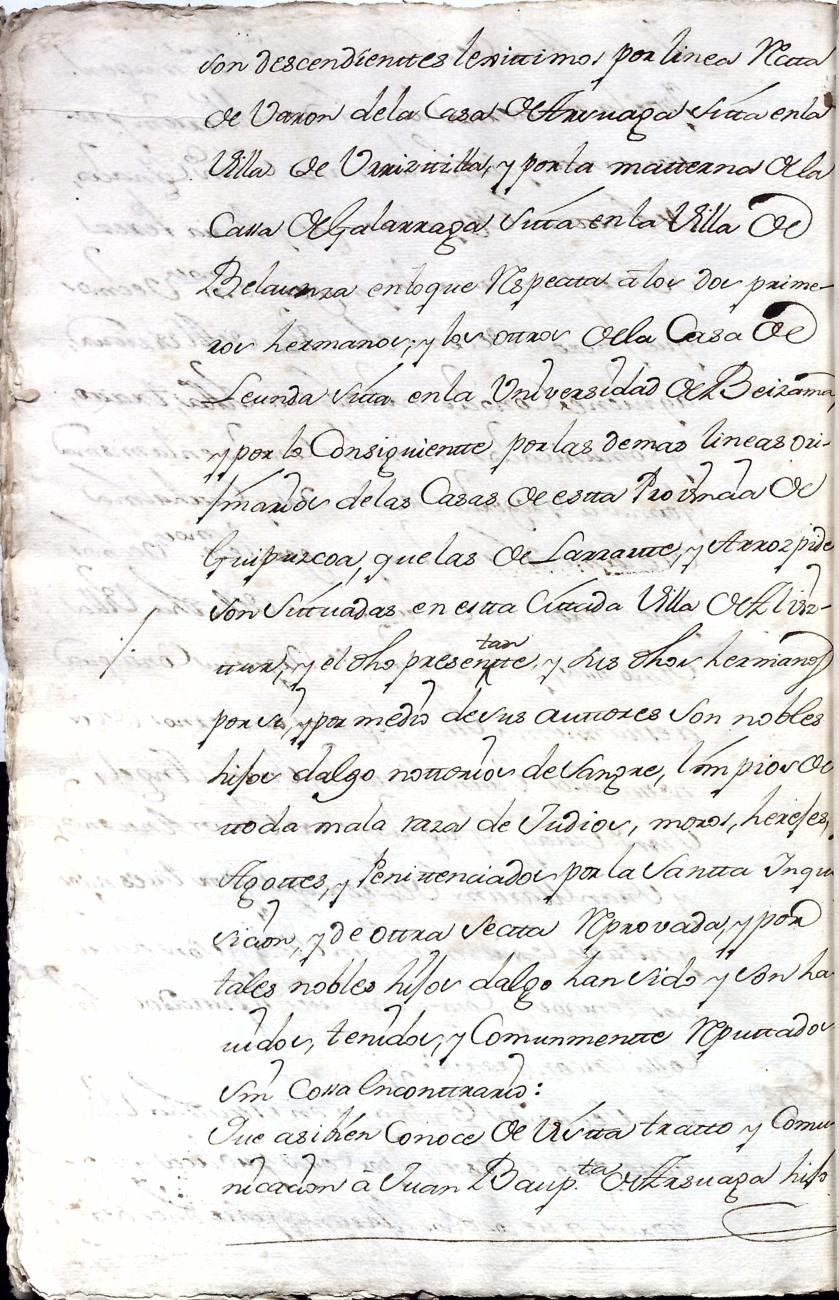 son descendienttes lexittimos por linea Rectta
de Varon dela Casa de Arsuaga sitta en la
Villa de Urrizttilla, y por la matterna de la
Cassa de Galarraga sitta en la Villa de
Belaunza en loque Respectta a los dos prime-
ros hermanos; y los ottros de la Casa de
Leunda sitta en la Universidad de Beizama,
y por lo Consiguientte por las demas lineas ori-
jinarios de las Casas de estta Provincia de
Guipuzcoa, que las de Larrantte, y Arrozpide
son sittuadas en estta Cittada Villa de Alviz-
ttur, y el dho presenttante, y sus dhos hermanos
por si, y por medio de sus auttores son nobles
hijos dalgo nottorios de sangre, limpios de
ttoda mala raza de Judios, moros, herejes,
Agottes, y Penittenciados por la Santta Inqui
sicion, y de ottra Sectta Reprovada, y por
tales nobles hijos dalgo han sido y son ha
uidos, tenidos, y Comunmentte Reputtados
sin Cossa en conttrario:
Que asi bien Conoce de Vistta tratto y Comu
nicacion a Juan Baup.ta de Arsuaga hijo